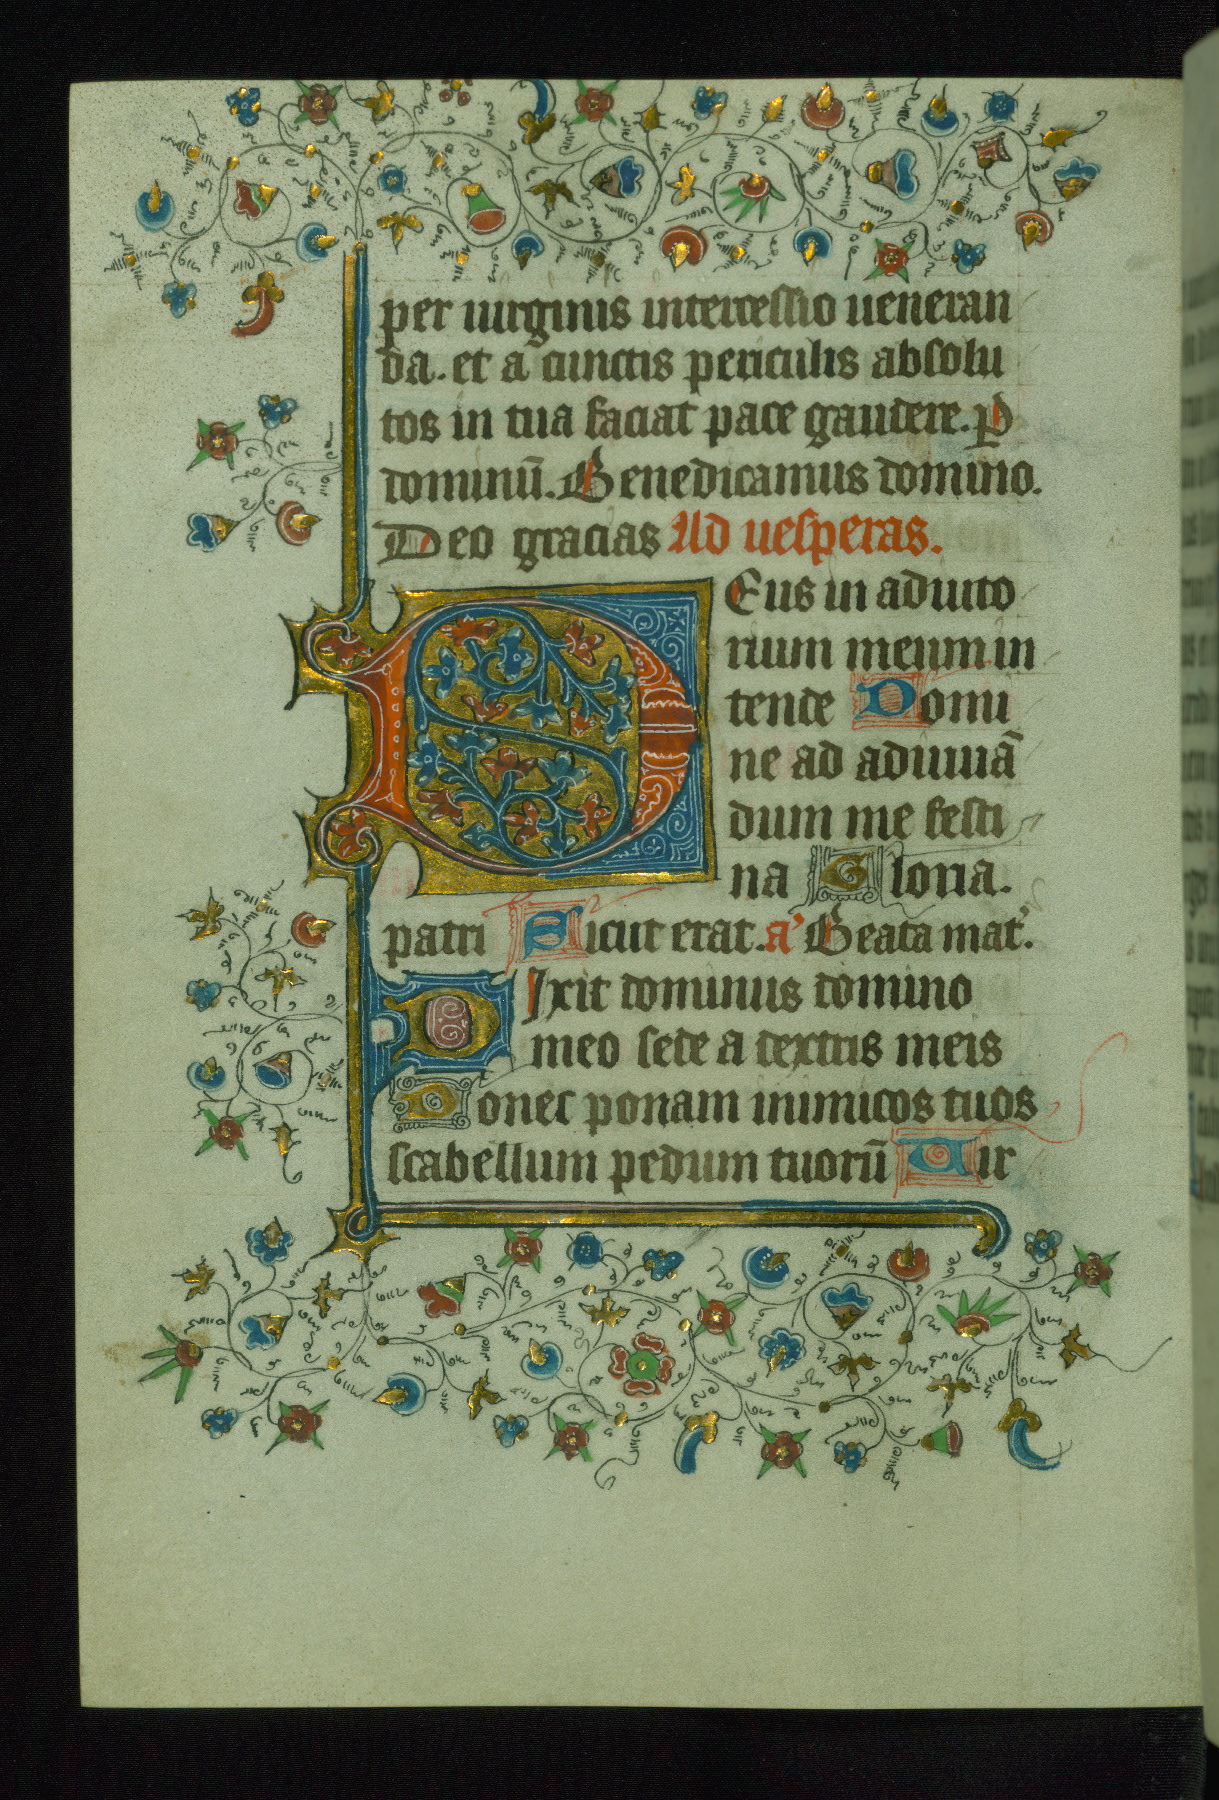 per uirginis intercessio ueneran
da. et a cunctis periculis absolu
tos in tua faciat pace gaudere. p̄
dominū. Benedicamus domino.
Deo gracias Ad uesperas.
Deus in adiuto
rium meum in
tende Domi
ne ad adiuuā
dum me festi
na Gloria.
patri Sicut erat. a' Beata mat'.
Dixit dominus domino
meo sede a dextris meis
Donec ponam inimicos tuos
scabellum pedum tuorū Uir